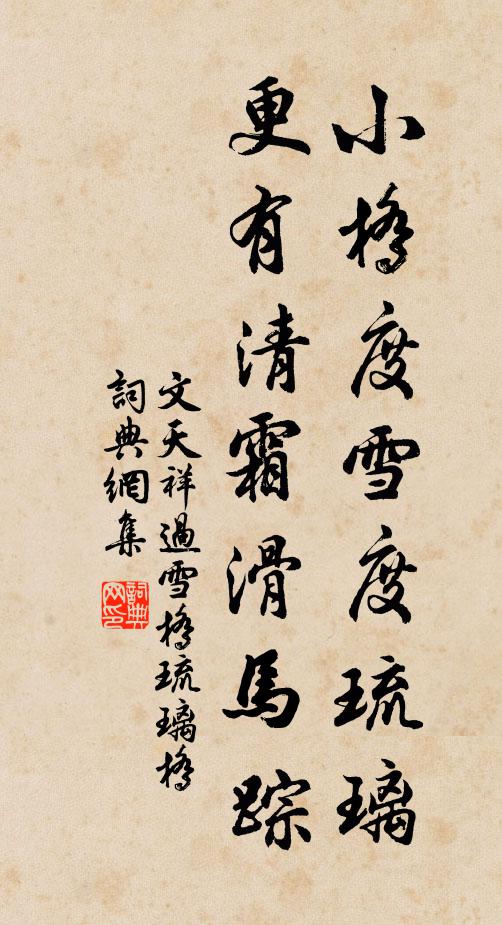 小橋度雪度琉璃
更有清霜滑馬蹤
文天祥過雪橋琉璃橋
詞典網集
詞典网印